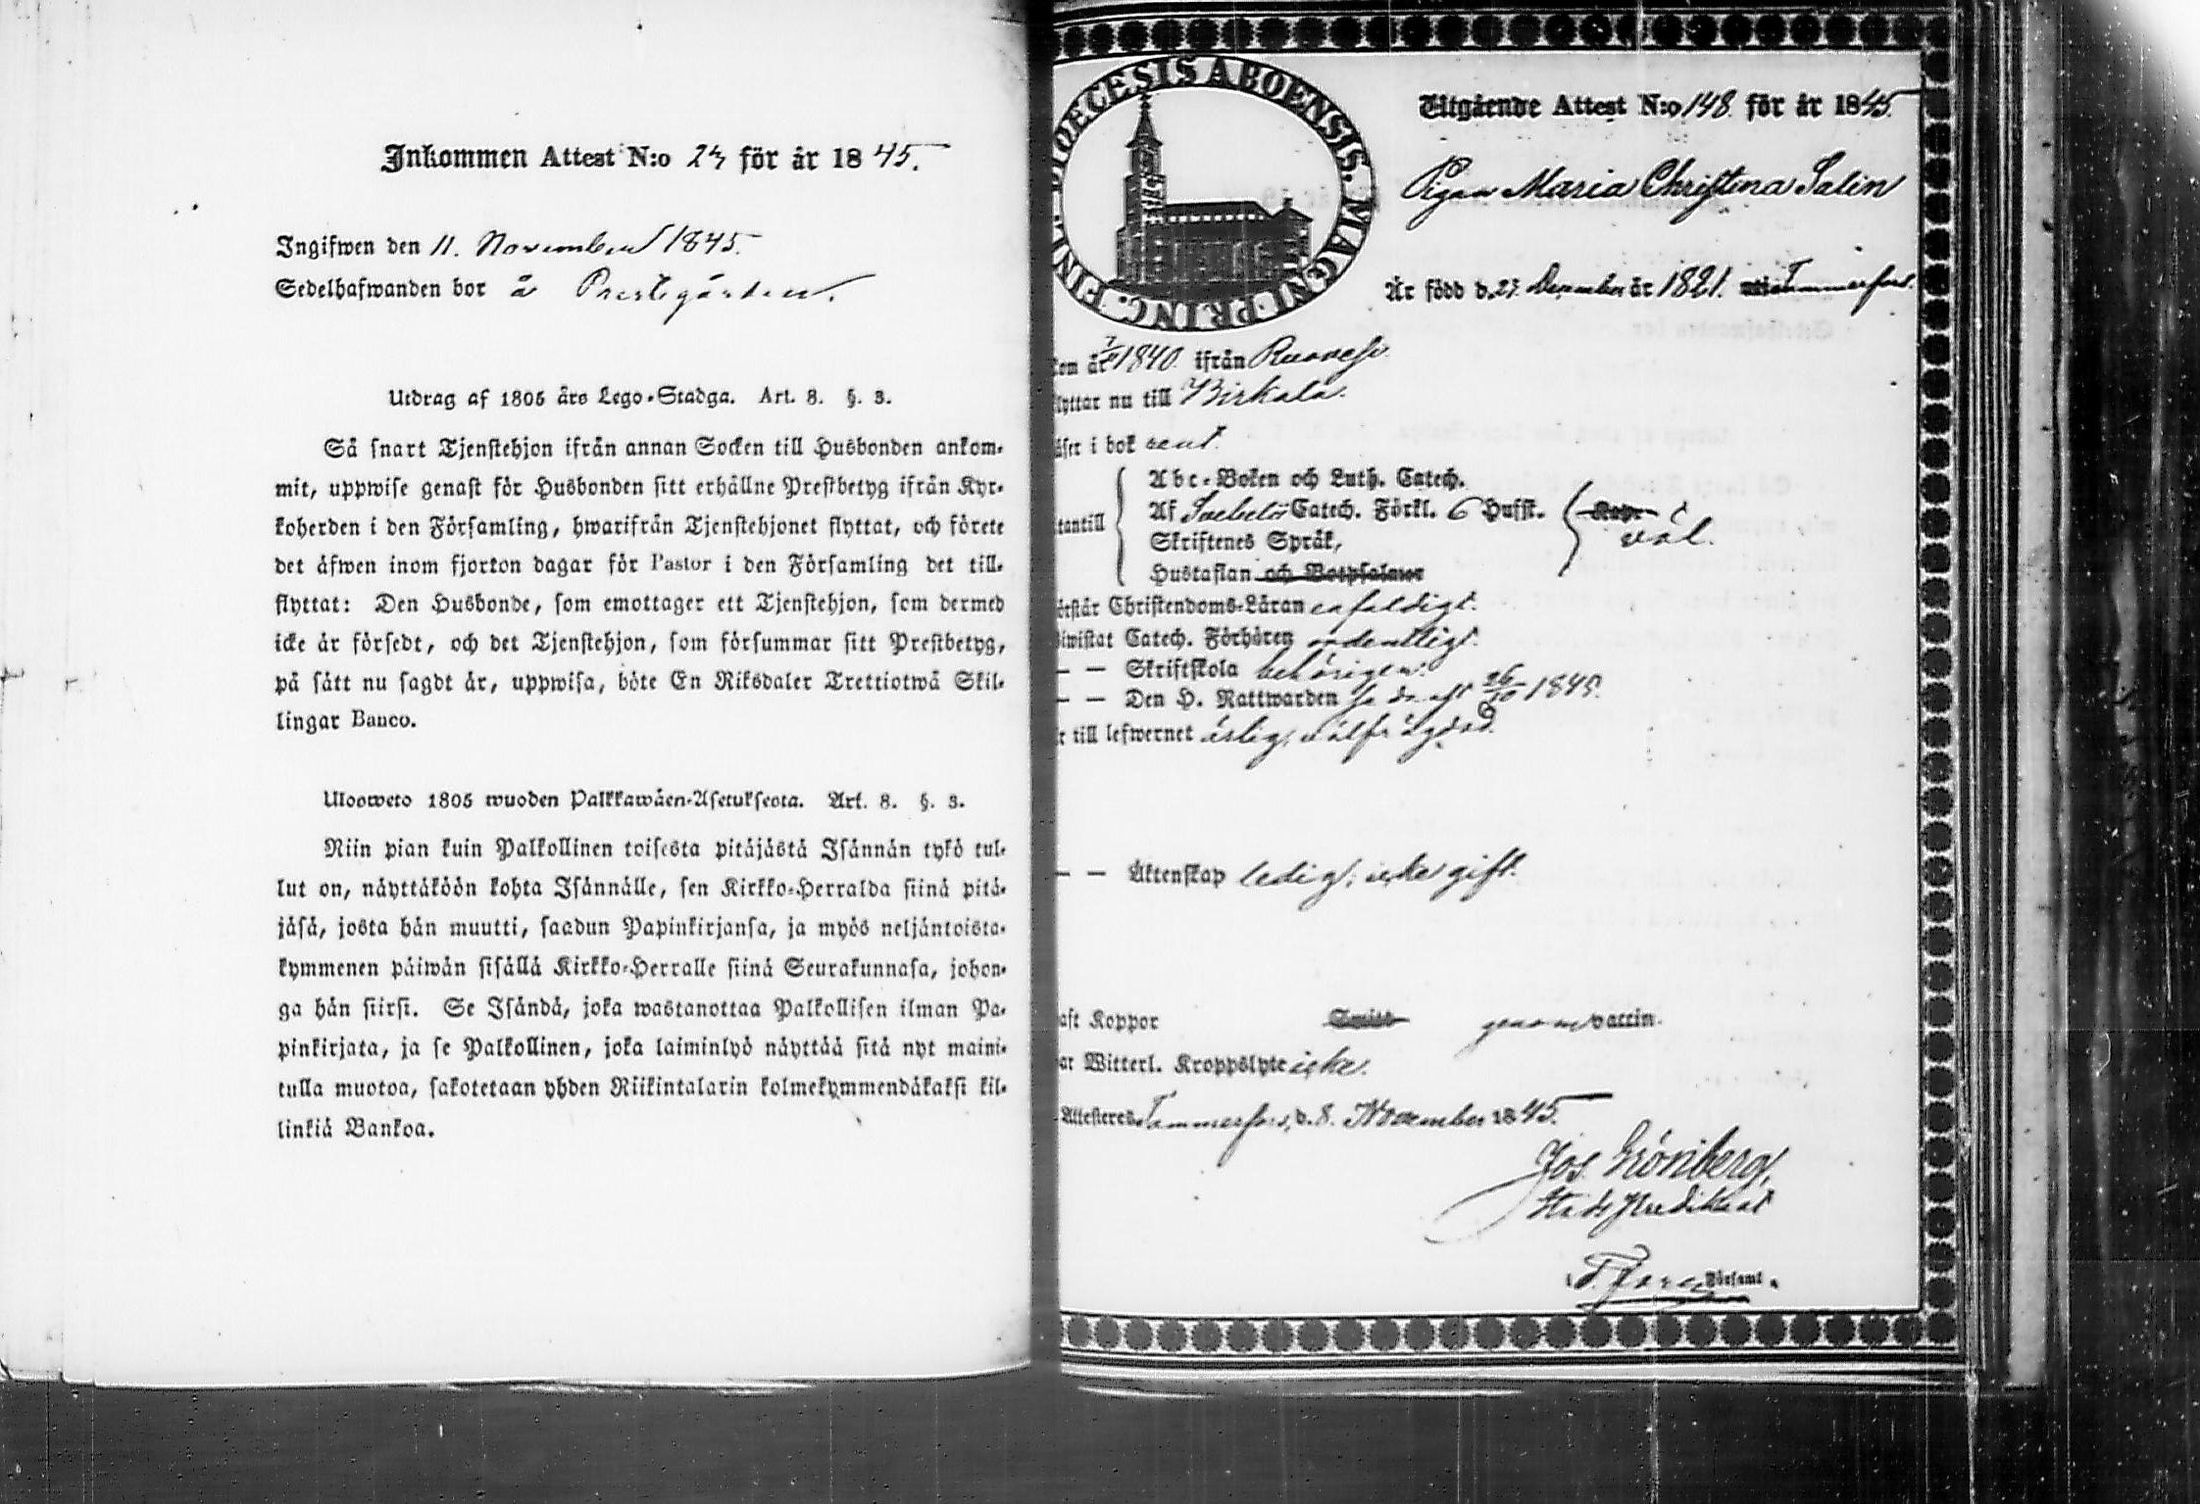 Inkommen Attest N:o 24 för år 1845.
Ingifwen den 11. November 1845.
Sedelhafwanden bor å Prestegården.
Utdrag af 1805 års Lego-Stadga. Art. 8. §. 3.
Så snart Tjenstehjon ifrån annan Socken till Husbonden ankom-
mit, uppwise genast för Husbonden sitt erhållne Prestbetyg ifrån Kyr-
koherden i den Församling, hwarifrån Tjenstehjonet flyttat, och förete
det äfwen inom fjorton dagar för Pastor i den Församling det till-
flyttat: Den Husbonde, som emottager ett Tjenstehjon, som dermed
icke är försedt, och det Tjenstehjon, som försummar sitt Prestbetyg,
på sätt nu sagdt är, uppwisa, böte En Riksdaler Trettiotwå Skil-
lingar Banco.
Ulosweto 1805 wuoden Palkkawäen-Asetuksesta. Art. 8. §. 3.
Niin pian kuin Palkollinen toisesta pitäjästä Isännän tykö tul-
lut on, näyttäköön kohta Isännälle, sen Kirkko-Herralda siinä pitä-
jäsä, josta hän muutti, saadun Papinkirjansa, ja myös neljäntoista-
kymmenen päiwän sisällä Kirkko-Herralle siinä Seurakunnasa, johon-
ga hän siirsi. Se Isändä, joka wastanottaa Palkollisen ilman Pa-
pinkirjata, ja se Palkollinen, joka laiminlyö näyttää sitä nyt maini-
tulla muotoa, sakotetaan yhden Riikintalarin kolmekymmendäkaksi kil-
linkiä Bankoa.
FINL. DIOECESIS ABOENSIS. MAGNI PRINC.
Utgående Attest N:o 148 för år 1845
Pigan Maria Christina Salin
Är född d. 27. December år 1821. Tammerfors.
kom år 1840. ifrån Ruovesi
flyttar nu till Birkala.
läser i bok rent.
Abc-Boken och Luth. Catech.
utantill Af Svebelii Catech. Förkl. 6 Hufst. väl.
Skriftenes Språk,
Hustaflan och Botpsalmer
förstår Christendoms-Läran enfaldigt.
biwistat Catech. Förhören ordentligt.
— — Skriftskola behörigen.
— — Den H. Nattwarden 26/10 1845.
är till lefwernet ärlig, välfrägdad.
— — Äktenskap ledig; icke gift.
haft Koppor genom vaccin.
har Witterl. Kroppslyte icke.
Attesteres Tammerfors, d. 8. November 1845.
Jos. Grönberg,
Stads Predikant
i T.fors Församl.